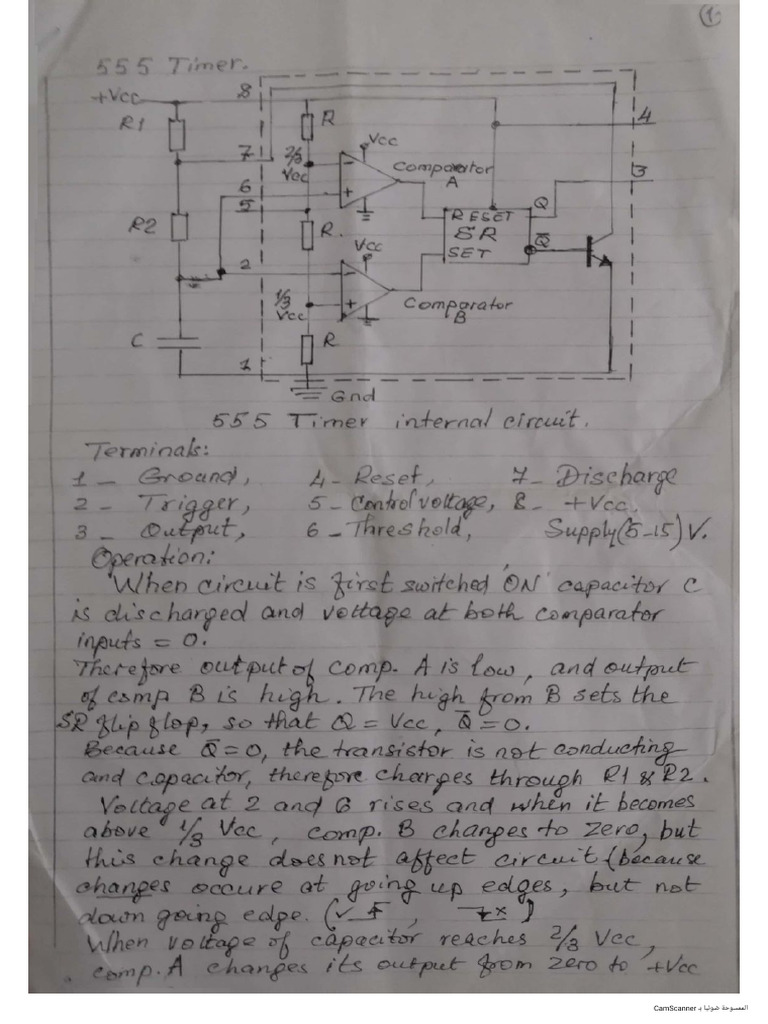 1
555 Timer.
+Vcc
8
R1
R
4
Vcc
7
2/3
Vcc
-
Comparator
A
3
6
+
Q
5
RESET
R2
R.
SR
Q̅
Vcc
SET
2
-
1/3
Vcc
+
Comparator
B
C
R
1
Gnd
555 Timer internal circuit.
Terminals:
1 - Ground, 4 - Reset, 7 - Discharge
2 - Trigger, 5 - Control voltage, 8 - +Vcc,
3 - Output, 6 - Threshold, Supply(5-15)V.
Operation:
When circuit is first switched 'ON' capacitor C
is discharged and voltage at both comparator
inputs = 0.
Therefore output of comp. A is low, and output
of comp B is high. The high from B sets the
SR flip flop, so that Q = Vcc, Q̅ = 0.
Because Q̅ = 0, the transistor is not conducting
and capacitor, therefore charges through R1 & R2.
Voltage at 2 and 6 rises and when it becomes
above 1/3 Vcc, comp. B changes to zero, but
this change does not affect circuit (because
changes occure at going up edges, but not
down going edge. (✓ , x)
When voltage of capacitor reaches 2/3 Vcc,
comp. A changes its output from zero to +Vcc
الممسوحة ضوئيا بـ CamScanner